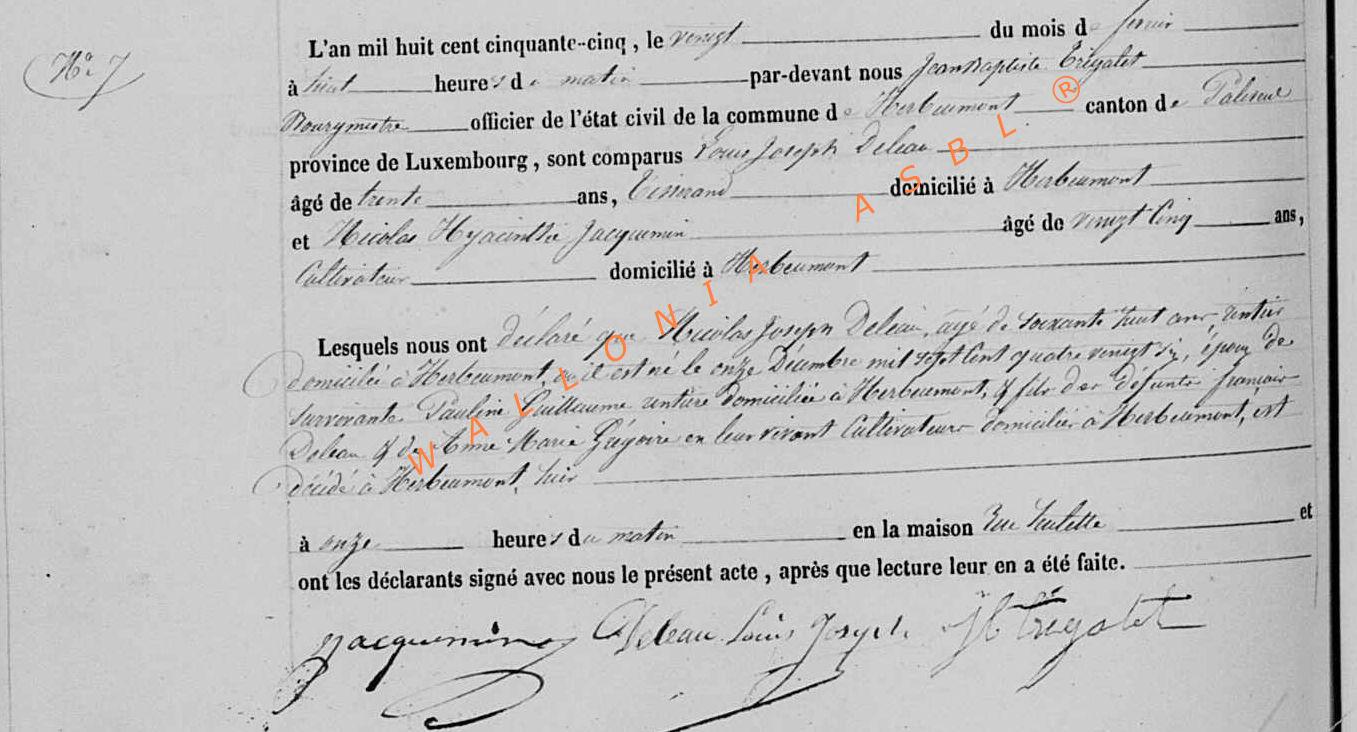 N° 7
L'an mil huit cent cinquante-cinq, le vingt du mois de février
à huit heures du matin par-devant nous Jean Baptiste Trégalet
Bourgmestre officier de l'état civil de la commune de Herbeumont canton de Paliseul
province de Luxembourg, sont comparus Louis Joseph Deleau
âgé de trente ans, Tisserand domicilié à Herbeumont
et Nicolas Hyacinthe Jacquemin âgé de vingt cinq ans,
Cultivateur domicilié à Herbeumont
Lesquels nous ont déclaré que Nicolas Joseph Deleau, âgé de soixante huit ans rentier
domicilié à Herbeumont, où il est né le onze Décembre mil sept cent quatre vingt six, époux de
survivante Pauline Guillaume rentière domiciliée à Herbeumont, & fils des défunts françois
Deleau & de Anne Marie Grégoire en leur vivant Cultivateurs domiciliés à Herbeumont, est
décédé à Herbeumont, hier
à onze heures du matin en la maison Rue et
ont les déclarants signé avec nous le présent acte, après que lecture leur en a été faite.
Jacquemin Deleau Louis Joseph JB Trégalet
WALLONIA ASBL ®